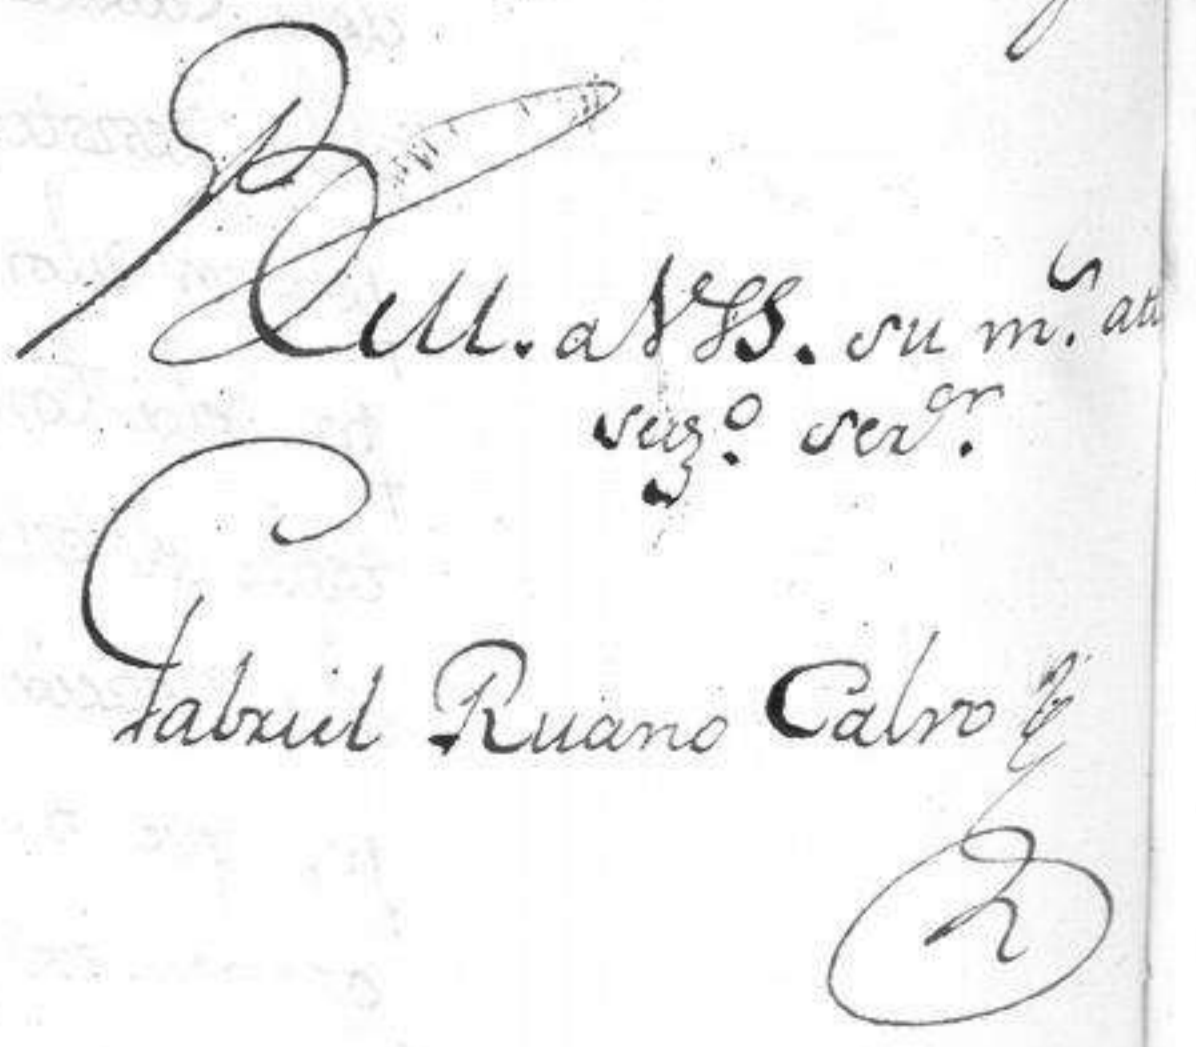 BLM. a VSS. su m.s ato
seg.o ser.or
Gabriel Ruano Calvo